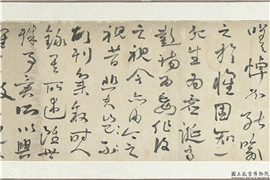 嗟悼不能喻
之於懷固知一
死生為虛誕齊
彭殤為妄作後
之視今亦由今之
視昔悲夫故
列叙時人
錄其所述雖世
殊事異所以興
國立故宮博物院